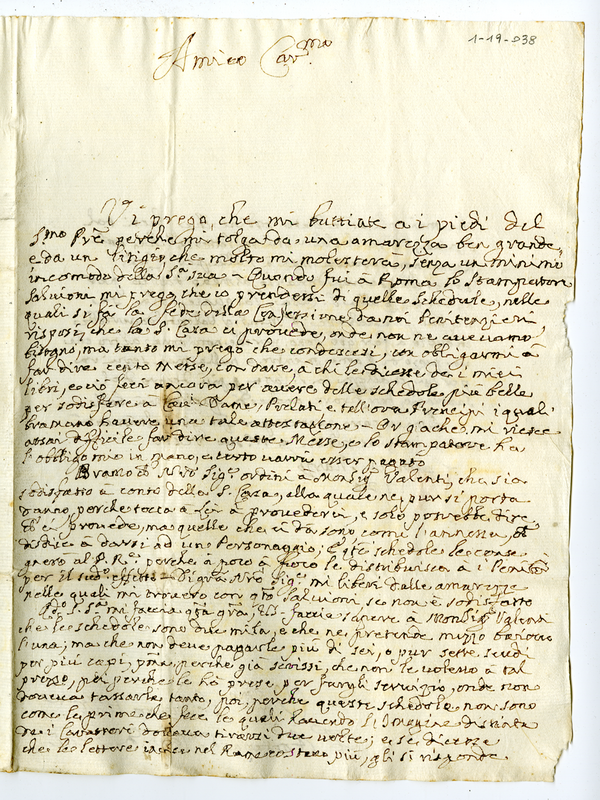 1-19-038
Amico Car.mo
Vi prego, che mi buttiate a i piedi del
S.mo Pre perche mi tolga da una amarezza ben grande,
e da un litigio, che molto mi molesterà, senza un minimo
incomodo della S.tà sua - Quando fui à Roma lo stampatore
Salvioni mi pregò, che io prendessi di quelle schedule, nelle
quali si fà la fede della Confessione da noi Penitenzieri,
risposi, che la S. Casa ci provede, onde non ne avevamo
bisogno, ma tanto mi pregò che condescesi, con obligarmi à
far dire cento Messe, con dare, à chi le dicesse de i miei
libri, e ciò feci ancora per avere delle schedole più belle
per sodisfare à Dame, Prelati e tall'ora Principi i quali
bramano havere una tale attestazione - Or già che mi riesce
assai difficile far dire queste Messe, e lo stampatore ha
l'obbligo mio in mano, e vorrà esser pagato
Bramo che Nro Sig.e ordini à Monsig.r Valenti, che sia
sodisfatto à conto della S. Casa, alla quale ne pur si porta
danno, perche tocca à Lei à provederci, e solo potrebbe dire,
che ci provede, ma quelle che ci dà sono come l'annessa, che
disdice à darsi ad un Personaggio; e le schedole le conse
gnerò al P. R.e perche à poco à poco le distribuisca à i Penit.ri
per il sud.o effetto - Digrà Nro Sig.e mi liberi dalle amarezze
nelle quali mi troverò con q.to Salvioni se non è sodisfatto
mi faccia q.ta gra, faccia sapere à Monsig.r Valenti
che le schedole sono due mila, e che ne pretende mezzo baiocco
l'una; ma che non deve pagarle più di sei, o pur sette scudi
per più capi, prima, perche già scrissi, che non le volevo à tal
prezzo, poi perche le hò prese per fargli servizio, onde non
doveva tassarle tanto, poi, perche queste schedole non sono
come le prime che fece le quali havendo l'Imagine distinta
da i caratteri doveva tirarsi due volte; e se dicesse
che le lettere incise nel Rame costano più, gli si risponde